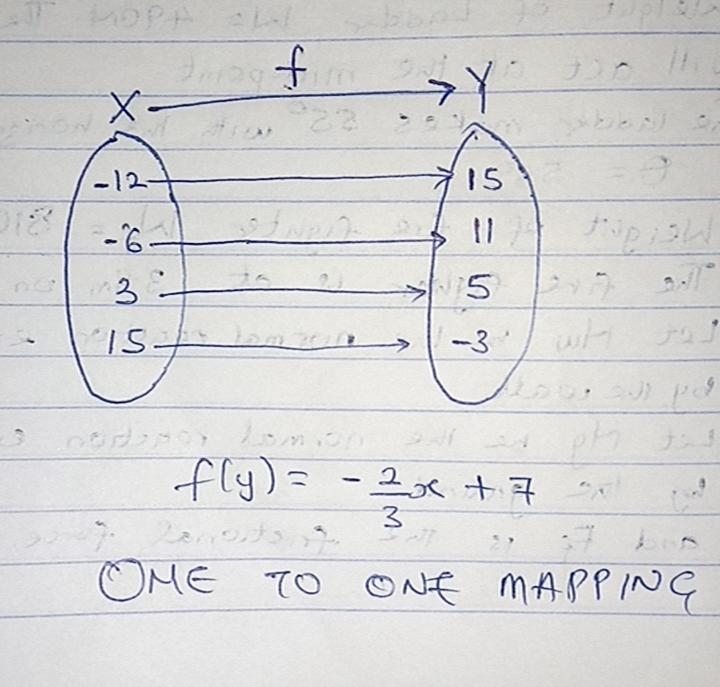 f
X Y
-12 15
-6 11
3 5
15 -3
f(y) = -2/3x + 7
ONE TO ONE MAPPING